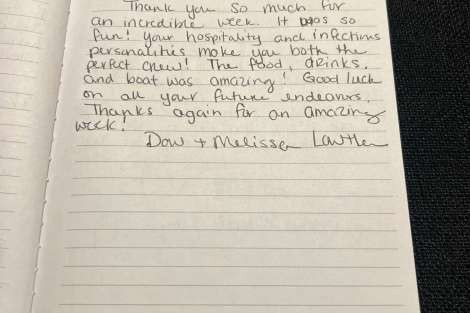 Thank you so much for
an incredible week. It was so
fun! Your hospitality and infectious
personalities make you both the
perfect crew! The food, drinks.
and boat was amazing! Good luck
on all your future endeavors.
Thanks again for an amazing
week.
Dow + Melissa